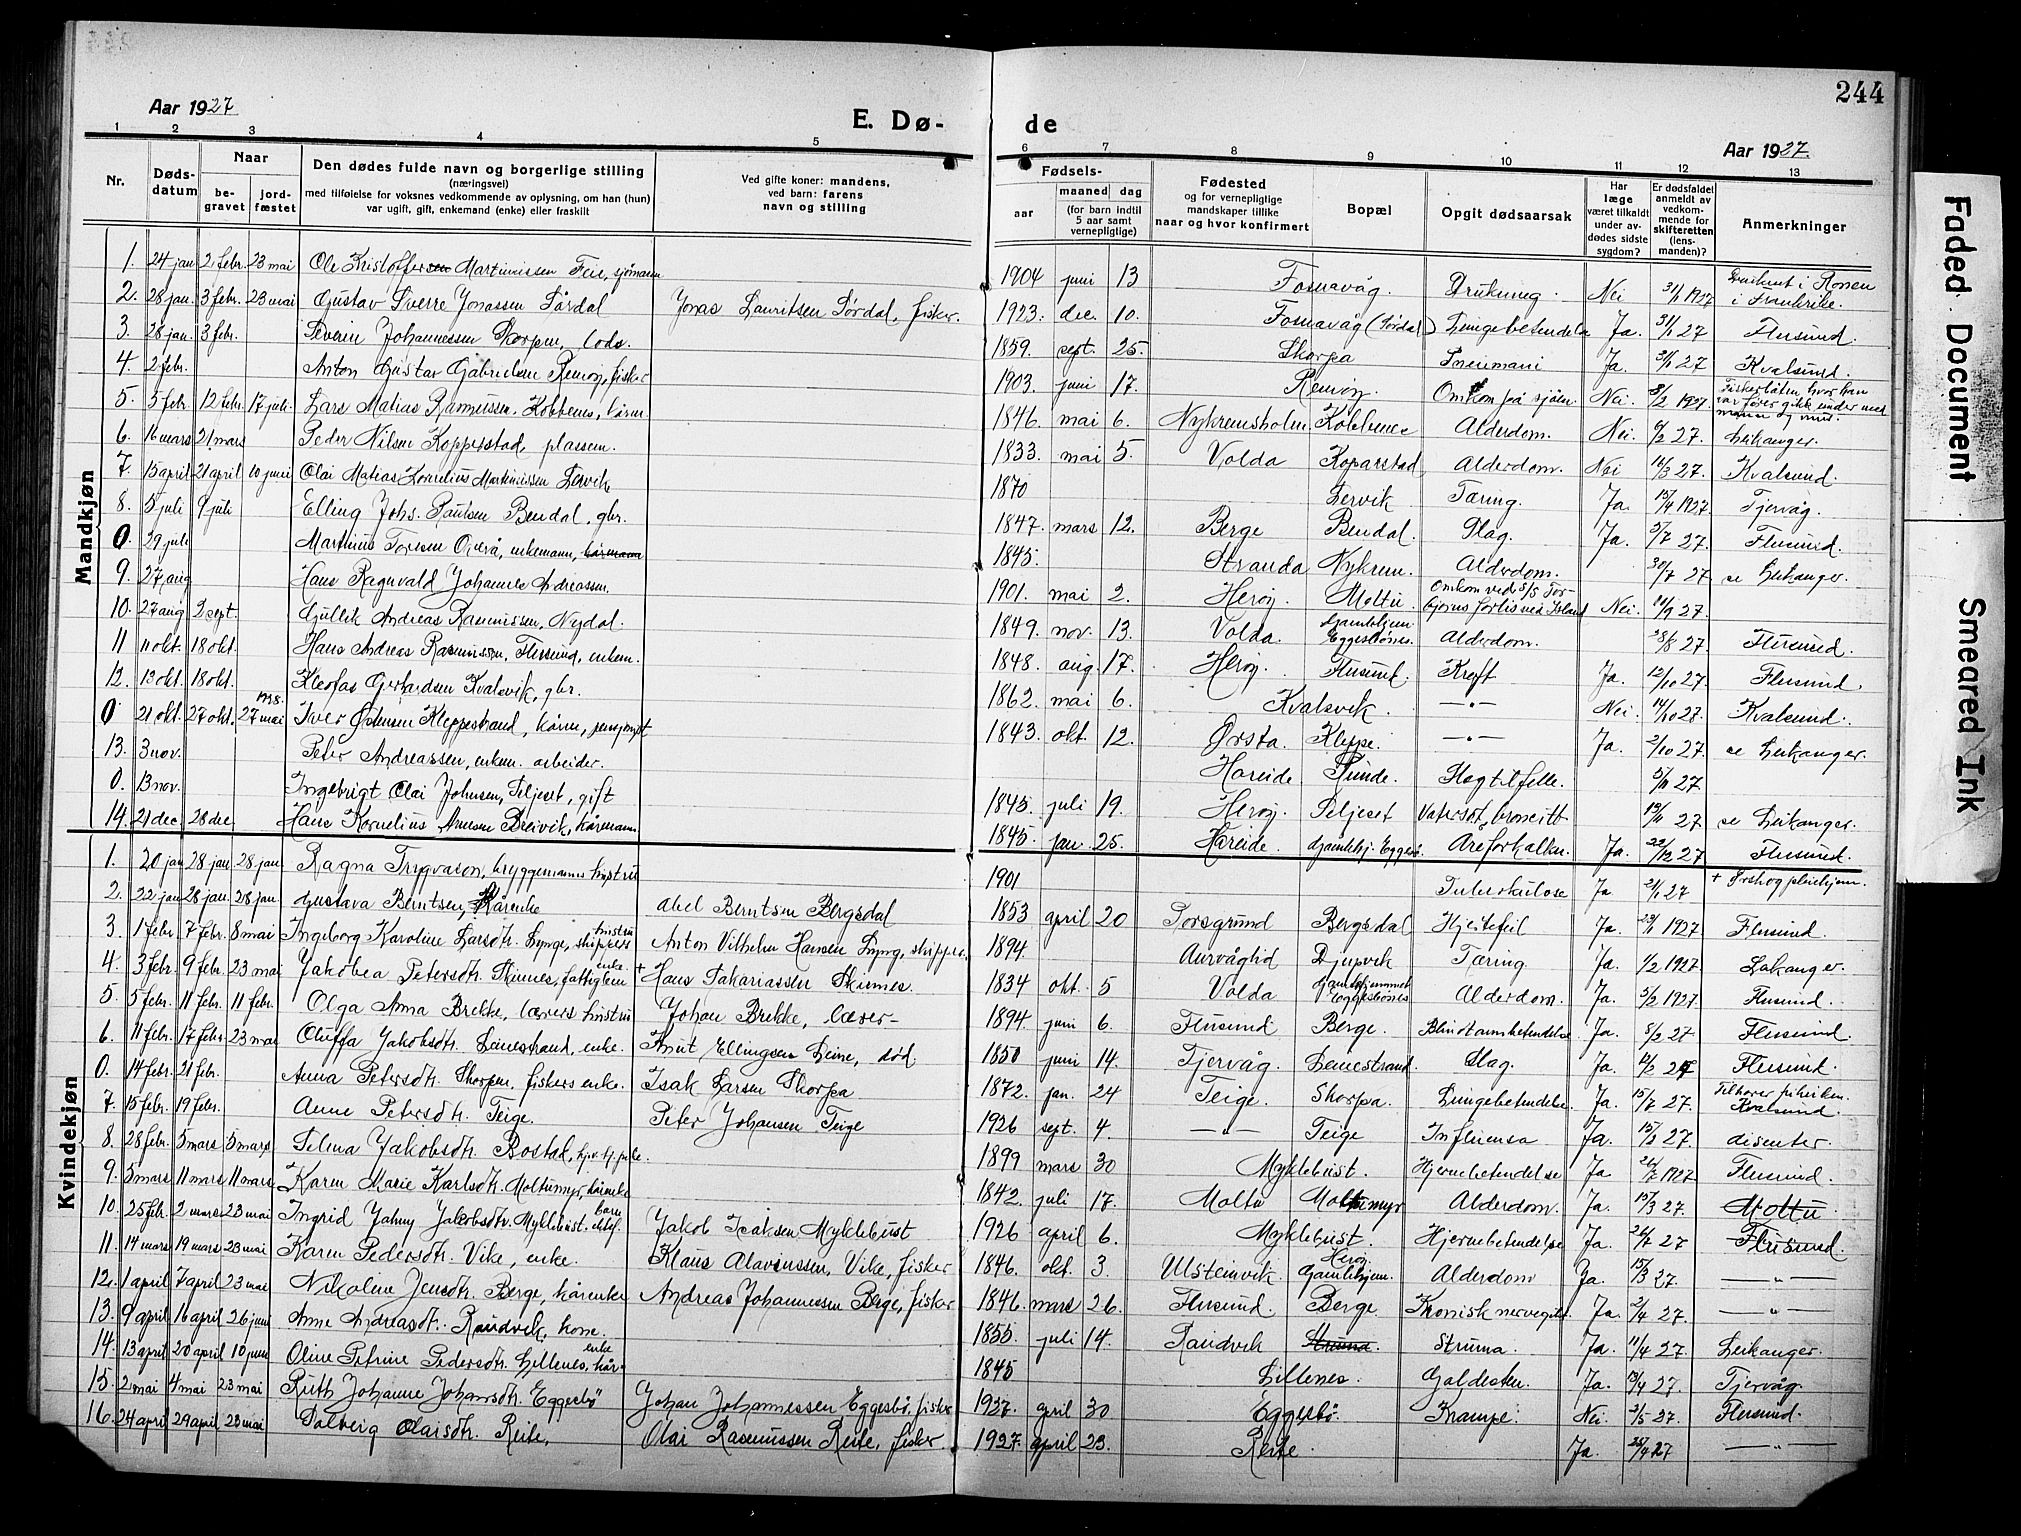 244
Aar 1927
E. Dø-
de
Aar 1927.
1 2 3 4 5 6 7 8 9 10 11 12 13
Nr.
Døds-datum
Naar
be-gravet
jord-fæstet
Den dødes fulde navn og borgerlige stilling
(næringsvei)
med tilføielse for voksnes vedkommende av oplysning, om han (hun)
var ugift, gift, enkemand (enke) eller fraskilt
Ved gifte koner: mandens,
ved barn: farens
navn og stilling
Fødsels-
aar
maaned
dag
(for barn indtil 5 aar samt vernepligtige)
Fødested
og for vernepligtige
mandskaper tillike
naar og hvor konfirmert
Bopæl
Opgit dødsaarsak
Har læge været tilkaldt under av-dødes sidste sygdom?
Er dødsfaldet anmeldt av vedkom-mende for skifteretten (lens-manden)?
Anmerkninger
Mandkjøn
1. 24 jan 2 febr. 23 mai Ole Kristoffersen Martinussen Fei, sjømann 1904 juni 13 Fosnavåg. Drukning. Nei 31/1 1927 i Frankrike.
2. 28 jan. 3 febr. 23 mai Gustav Sverre Jonassen Sørdal Jonas Lauritsen Sørdal, fisker. 1923. dec. 10. Fosnavåg (Sørdal) Lungebetendelse Ja. 31/1 27 Flusund.
3. 28 jan. 3 febr. Severin Johannessen Skorpen, lods. 1859. sept. 25. Skorpa Ja. 31/1 27 Kvalsund.
4. 2 febr. Anton Gustav Gabrielsen Remøy, fisker 1903. juni 17. Remøy. Omkom på sjøen. Nei. 8/2 1927 Fiskerbåten, hvor han var fører gikk under med mann og mus.
5. 5 febr. 12 febr. 17 juli Lars Matias Rasmussen Kobbenes, kårm. 1846. mai 6. Nykremsholm Alderdom. Nei. 27. Leikanger.
6. 16 mars 21 mars Peder Nilsen Koppestad, plassm. 1833. mai 5. Volda Koparstad Alderdom. Nei 16/3 27. Kvalsund.
7. 15 april 21 april 10 juni Olai Matias Kornelius Martinussen Lervik 1870 Lervik Tæring. Ja. 15/4 1927. Tjervåg.
8. 5 juli 9 juli Elling Johs. Paulsen Bendal, gbr. 1847. mars 12. Berge Bendal. Slag. Ja. 5/7 27. Flusund.
0. 29 juli Martinus Toresen Overå, enkemann, kårmann 1845. Stranda Nykrem. Alderdom. 30/7 27 se Leikanger.
9. 27 aug Hans Ragnvald Johannes Andreassen. 1901. mai 2. Herøy. Moltu. Omkom ved S/S Tor- forlis ved Island Nei. 27.
10. 27 aug 2 sept. Gullik Andreas Rasmussen, Nydal. 1849. nov. 13. Volda. Gamlehjem Eggesbønes. Alderdom. 27 Flusund.
11 11 okt. 18 okt. Hans Andreas Rasmussen, Flusund, enkem. 1848. aug. 17. Herøy. Flusund. Kreft Ja. 12/10 27. Flusund.
12. 13 okt. 18 okt. Kleofas Gerhardsen Kvalsvik, gbr. 1862. mai 6. Kvalsvik. —"— Nei. 14/10 27. Kvalsund.
0 21 okt. 27 okt. 1928. 27 mai Iver Johnsen Kleppestrand, kårm, 1843. okt. 12. Ørsta. Kleppe. —"— Ja. 27. se Leikanger.
13. 3 nov. Peter Andreassen, enkem. arbeider. Hareide Slagtilfelle. 5/11 27.
0. 13 nov. Ingebrigt Olai Johnsen, Seljeset, gift 1845. juli 19. Herøy. Seljeset Vatersot, bronkitt. 27 se Leikanger.
14. 21 dec. 28 dec. Hans Kornelius Breivik, kårmann 1845. jan. 25. Hareide. gamlehj. Eggesb. Areforkalkn. Ja. 22/12 27 Flusund.
Kvindekjøn
1. 20 jan 28 jan 28 jan Ragna Trygvason, bryggemanns hustru 1901 Tuberkulose Ja 21/1 27 + Ørskog pleiehjem.
2. 22 jan 28 jan. 28 jan. Gustava Berntsen, kårenke Abel Berntsen Bergsdal 1853 april 20 Porsgrund Bergsdal Hjertefeil Ja. 1927 Flusund.
3. 1 febr. 7 febr. 8 mai Ingeborg Karoline Larsdtr. Lynge, skippers hustru Anton Vilhelm Hansen Lyng, skipper. 1894. Aurvåglid Djupvik Tæring. Ja. 1/2 1927.
4. 3 febr. 9 febr. 23 mai Jakobea Petersdtr. Skinnes, fattiglem enke. + Hans Sakariassen Skinnes. 1834 okt. 5 Volda gamlehjemmet Eggesbønes Alderdom. Ja. 5/2 1927. Flusund.
5. 5 febr. 11 febr. 11 febr. Olga Anna Brekke, lærers hustru Johan Brekke, lærer— 1894. juni 6. Flusund Berge. Blindtarmsbetendelse Ja. 8/2 27. Flusund.
6. 11 febr. 17 febr. 23 mai Oluffa Jakobsdtr. Leinestrand, enke. Knut Ellingsen Leine, død 1850 juni 14. Tjervåg. Leinestrand. Slag. Ja. 12/2 27 Flusund.
0. 14 febr. 21 febr. Anna Petersdtr. Skorpen, fiskers enke. Isak Larsen Skorpa 1872. jan. 24 Teige. Skorpa. Lungebetendelse. Ja. 27. Tilhører frikirken. Kvalsund.
7. 15 febr. 19 febr. Anne Petersdtr. Teige. Peter Johansen Teige 1926 sept. 4. —"— Teige Influensa Ja. 27. disenter.
8. 28 febr. 5 mars 5 mars Selma Jakobsdtr. Bostad, 1899 mars 30 Myklebust. Hjernebetendelse Ja 1927 Flusund.
9. 5 mars 11 mars 11 mars Karen Marie Karlsdtr. Moltumyr, kårenke 1842. juli 17. Moltu Moltumyr Alderdom. Ja. 15/3 27. Moltu.
10. 25 feb. 2 mars 23 mai Ingrid Jahny Jakobsdtr. Myklebust. barn Jakob Isaksen Myklebust 1926 april 6. Myklebust. Hjernebetendelse Ja. 27 Flusund.
11. 14 mars 19 mars 23 mai Karen Pedersdtr. Vike, enke. Klaus Olavsussen, Vike, fisker 1846. okt. 3. Ulsteinvik. Herøy Gamlehjem. Alderdom Ja. 15/3 27. —"—
12. 1 april 7 april 23 mai Nikoline Jensdtr. Berge, kårenke Andreas Johannessen Berge, fisker 1846. mars 26. Flusund. Berge. Kronisk Ja. 2/4 27. —"—
13. 9 april 16 april 26 juni Anne Andreasdtr. Randvik, kone. 1855. juli 14. Sandvik Struma. Struma. Ja. 11/4 27. Leikanger.
14. 13 april 20 april 10 juni Oline Petrine Pedersdtr. Lillenes, kår- enke 1845 Lillenes. Galdesten. Ja. 13/4 27. Tjervåg.
15. 2 mai 4 mai 23 mai Ruth Johanne Johansdtr. Eggesbø Johan Johannessen Eggesbø, fisker 1927. april 30 Eggesbø. Krampe. Nei. 3/5 27. Flusund.
16. 24 april 29 april 23 mai Solveig Olaisdtr. Reite, Olai Rasmussen Reite, fisker. 1927. april 23. Reite. Ja. 27 —"—
Faded Document
Smeared Ink